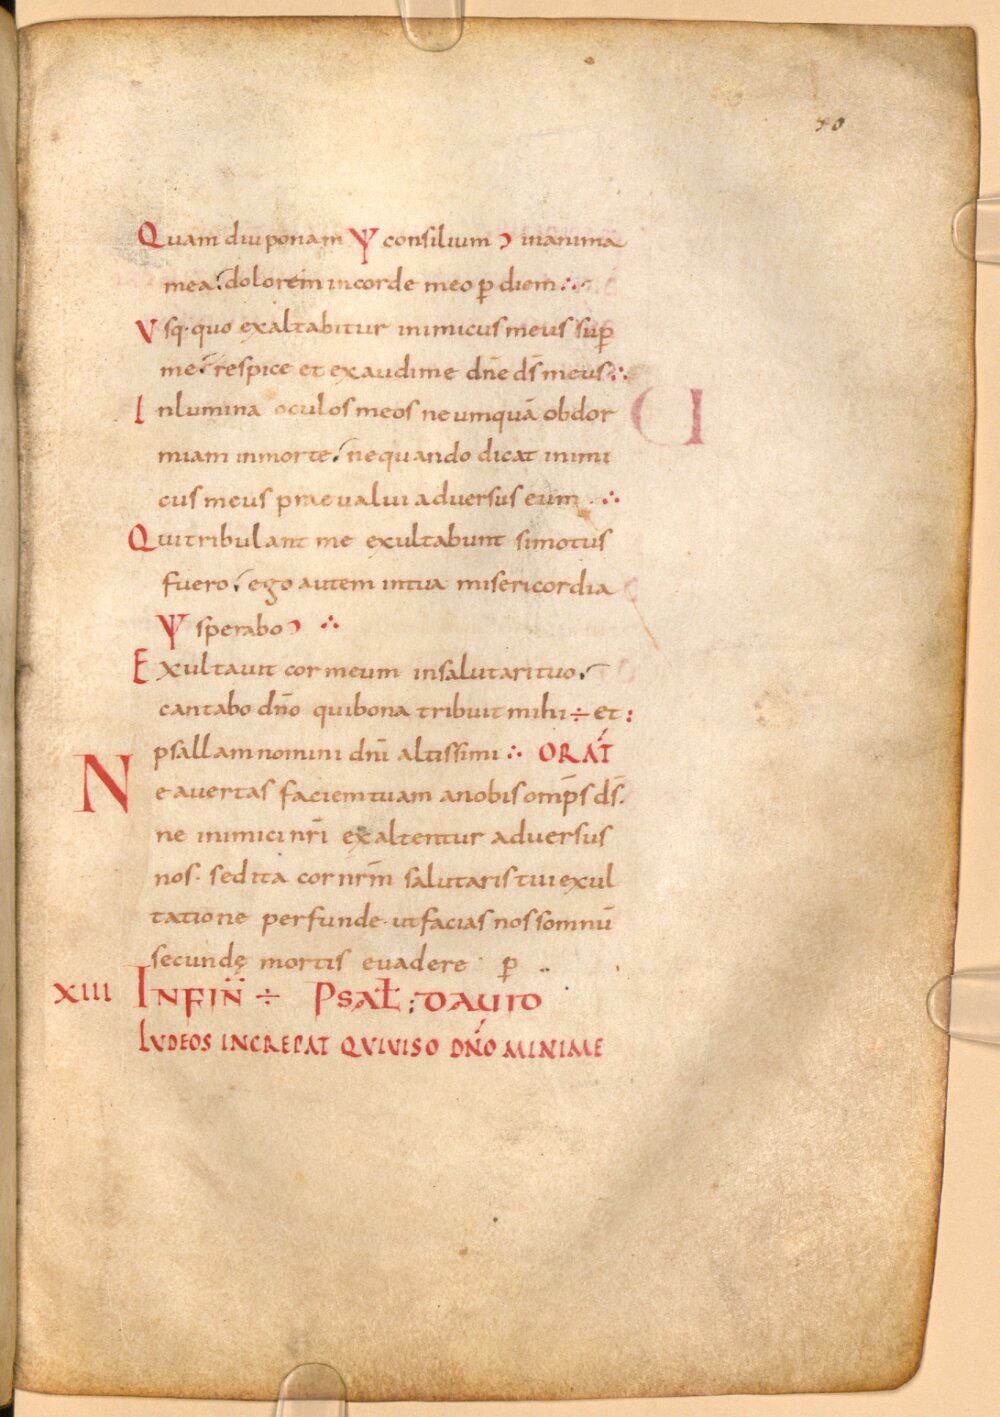 70
Quam diu ponam Ψ consilium ꓛ in anima
mea; dolorem in corde meo p̱ diem ∴
Vsq· quo exaltabitur inimicus meus sup̱
me; respice et exaudi me dn̄e ds̄ meus ∴
Inlumina oculos meos ne umquā obdor
miam in morte; nequando dicat inimi
cus meus praeualui aduersus eum ∴
Qui tribulant me exultabunt si motus
fuero; ego autem in tua misericordia
Ψ sperabo ꓛ ∴
Exultauit cor meum in salutari tuo;
cantabo dn̄o qui bona tribuit mihi ÷ et :
psallam nomini dn̄i altissimi ∴ ORAT̄
Ne auertas faciem tuam a nobis omp̄s ds̄.
ne inimici nr̄i exaltentur aduersus
nos· sed ita cor nr̄m salutaris tui exul
tatione perfunde· ut facias nos somnū
secundę mortis euadere p̱
XIII IN FIN̄ ÷ PSAŁ : DAUID
IUDEOS INCREPAT QUI UISO DN̄O MINIME